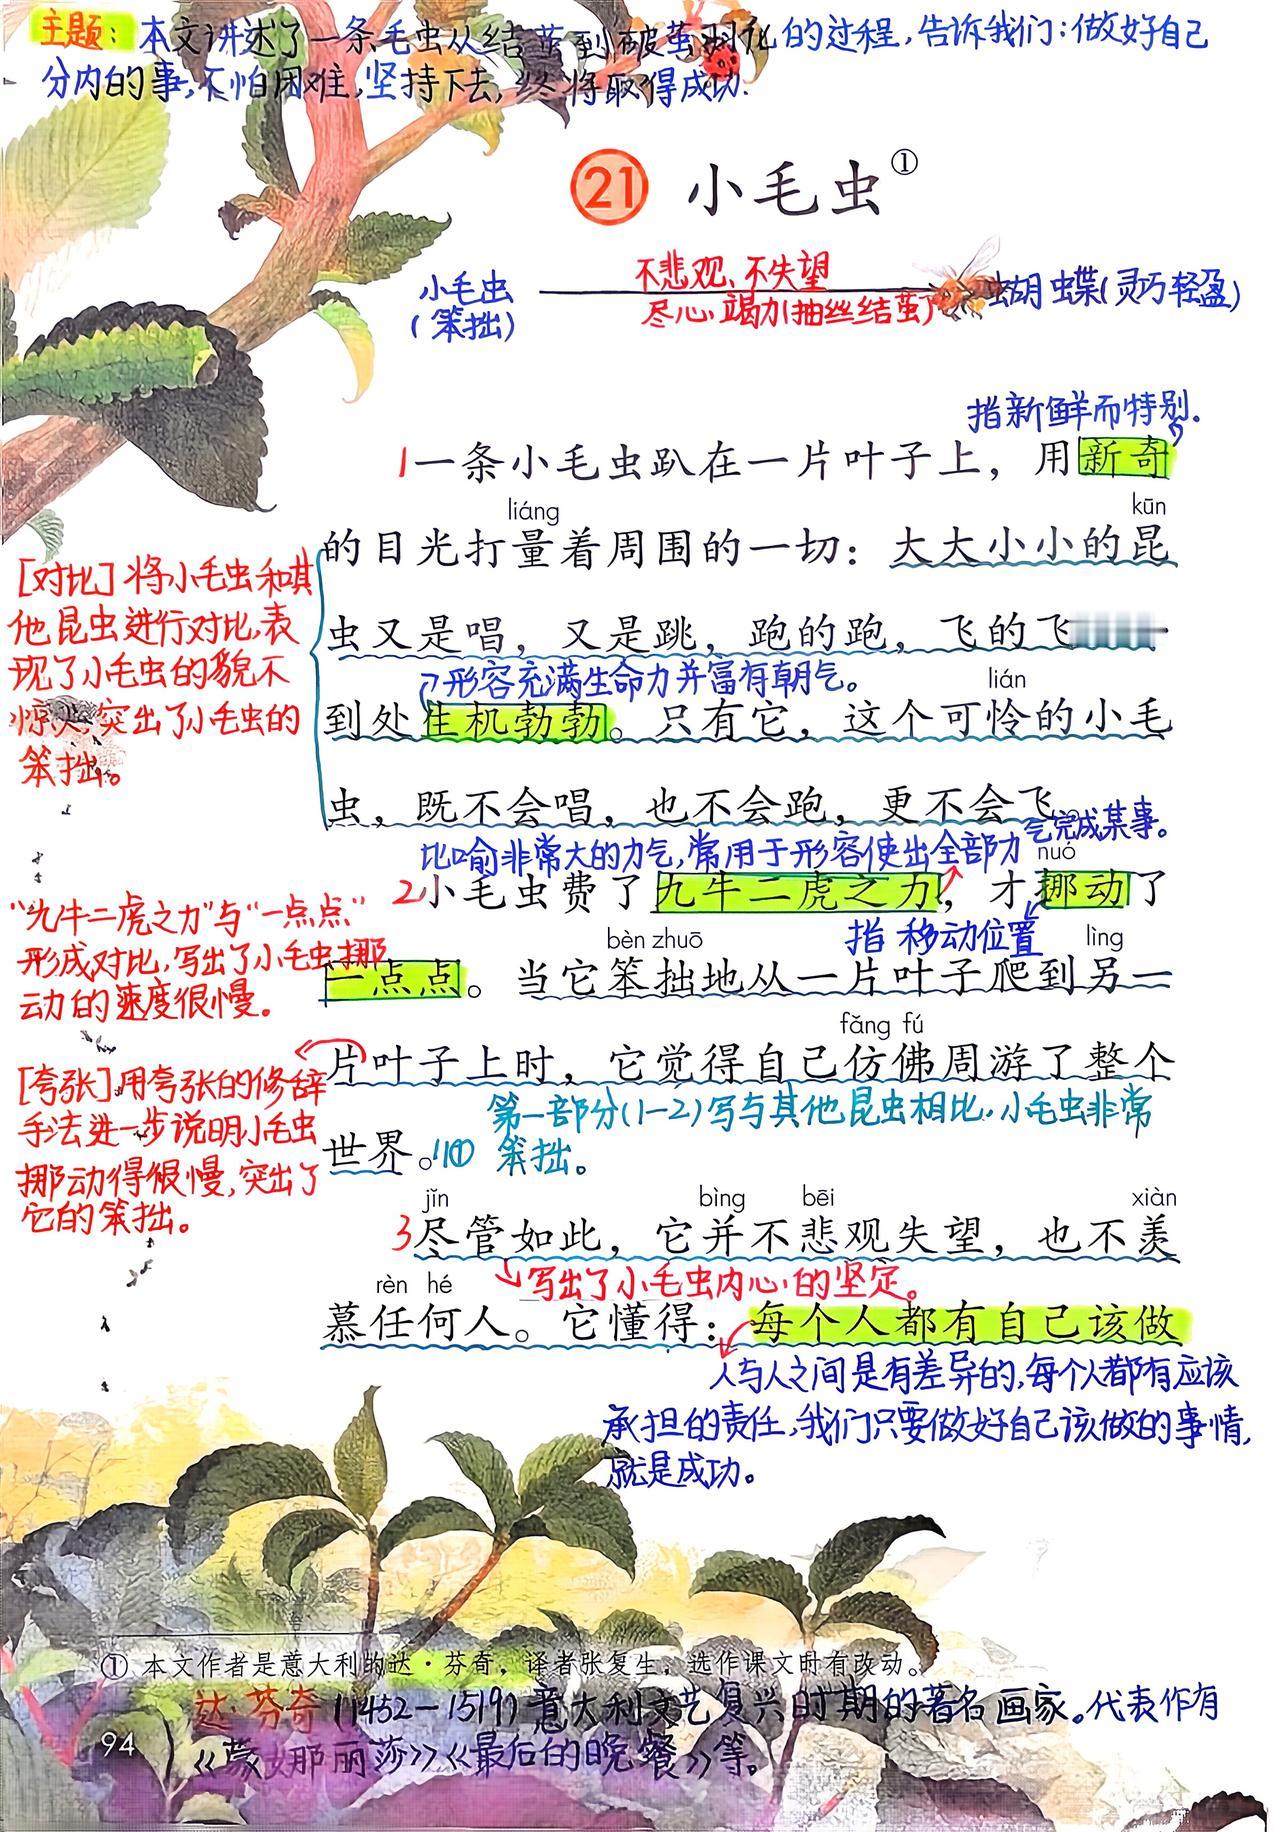 主题：本文讲述了一条毛虫从结茧到破茧羽化的过程，告诉我们：做好自己
分内的事，不怕困难，坚持下去，终将取得成功.
21 小毛虫①
小毛虫
（笨拙）
不悲观、不失望
尽心竭力（抽丝结茧）
蝴蝶（灵巧轻盈）
指新鲜而特别.
1一条小毛虫趴在一片叶子上，用新奇
liáng kūn
的目光打量着周围的一切：大大小小的昆
虫又是唱，又是跳，跑的跑，飞的飞
形容充满生命力并富有朝气。
lián
到处生机勃勃。只有它，这个可怜的小毛
虫，既不会唱，也不会跑，更不会飞。
[对比]将小毛虫和其
他昆虫进行对比，表
现了小毛虫的貌不
惊人，突出了小毛虫的
笨拙。
比喻非常大的力气，常用于形容使出全部力气完成某事。
nuó
2小毛虫费了九牛二虎之力，才挪动了
指移动位置
bèn zhuō lìng
一点点。当它笨拙地从一片叶子爬到另一
"九牛二虎之力"与"一点点"
形成对比，写出了小毛虫挪
动的速度很慢。
fǎng fú
片叶子上时，它觉得自己仿佛周游了整个
世界。
[夸张]用夸张的修辞
手法进一步说明小毛虫
挪动得很慢，突出了
它的笨拙。
第一部分（1-2）写与其他昆虫相比，小毛虫非常
笨拙。
jǐn bìng bēi xiàn
3尽管如此，它并不悲观失望，也不羡
写出了小毛虫内心的坚定。
rèn hé
慕任何人。它懂得：每个人都有自己该做
人与人之间是有差异的，每个人都有应该
承担的责任，我们只要做好自己该做的事情，
就是成功。
① 本文作者是意大利的达·芬奇，译者张复生，选作课文时有改动。
达·芬奇（1452-1519）意大利文艺复兴时期的著名画家。代表作有
《蒙娜丽莎》《最后的晚餐》等。
94